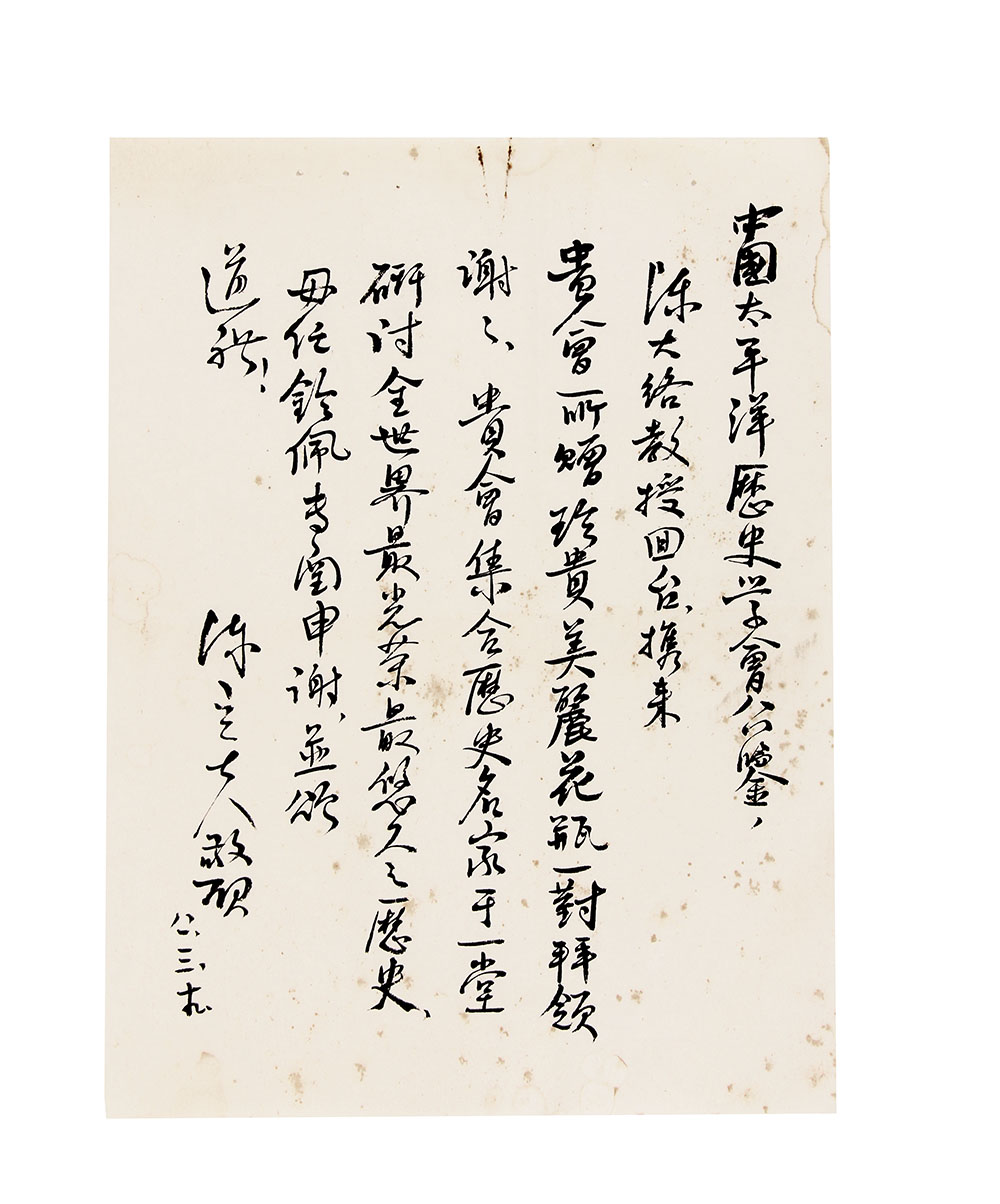 中國太平洋歷史学會公鑒，
陳大絡教授回台、携来
貴會所贈珍貴美麗花瓶一對拜領
謝謝、貴會集合歷史名家于一堂
研討全世界最光荣最悠久之歷史、
毋任欽佩專函申謝、並頌
道祺！
陳立夫敬啟
八、三、